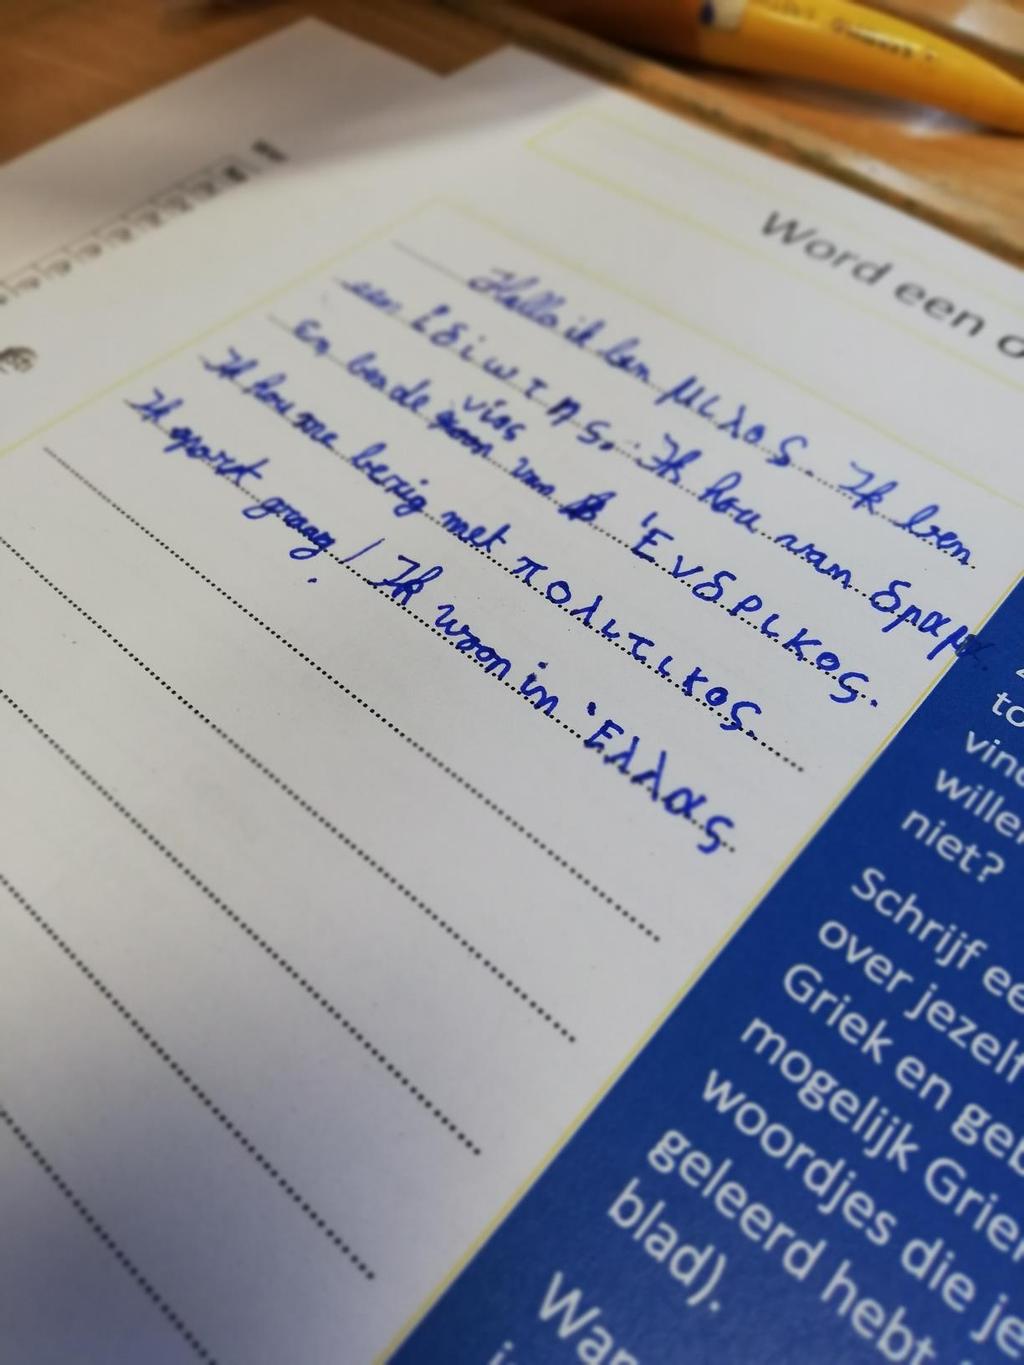 Word een o
Hallo ik ben μιλος. Ik ben
een ἰδιωτης. Ik hou van δραμα
En ben de νἱος van Ἑνδρικος.
Ik hou me bezig met πολιτικος.
Ik sport graag / Ik woon in Ἑλλας
to
vind
willen
niet?
Schrijf ee
over jezelf
Griek en geb
mogelijk Griek
woordjes die je
geleerd hebt
blad).
Wan